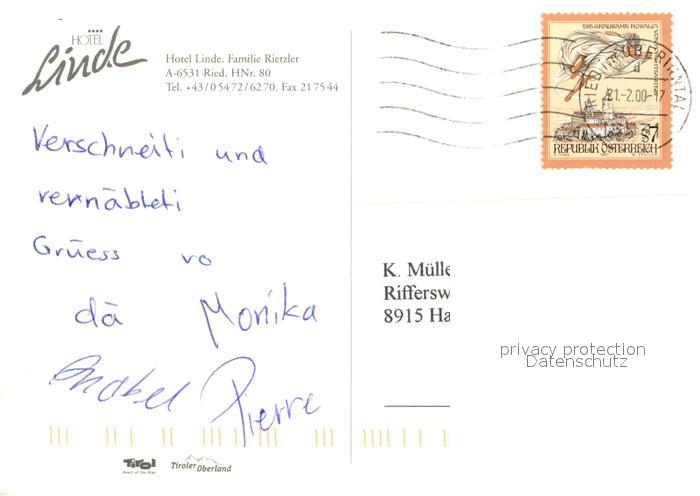 HOTEL
Linde
Hotel Linde. Familie Rietzler
A-6531 Ried, HNr. 80
Tel. +43/05472/6270. Fax 217544
Verschneiti und
vernäbleti
Grüess vo
dä Monika
Anabel Pierre
DIE GRAUSAME ROSALIA
21.-2.00-17
S7
REPUBLIK ÖSTERREICH
K. Mülle
Riffersw
8915 Ha
privacy protection
Datenschutz
Tirol
Heart of the Alps
Tiroler Oberland